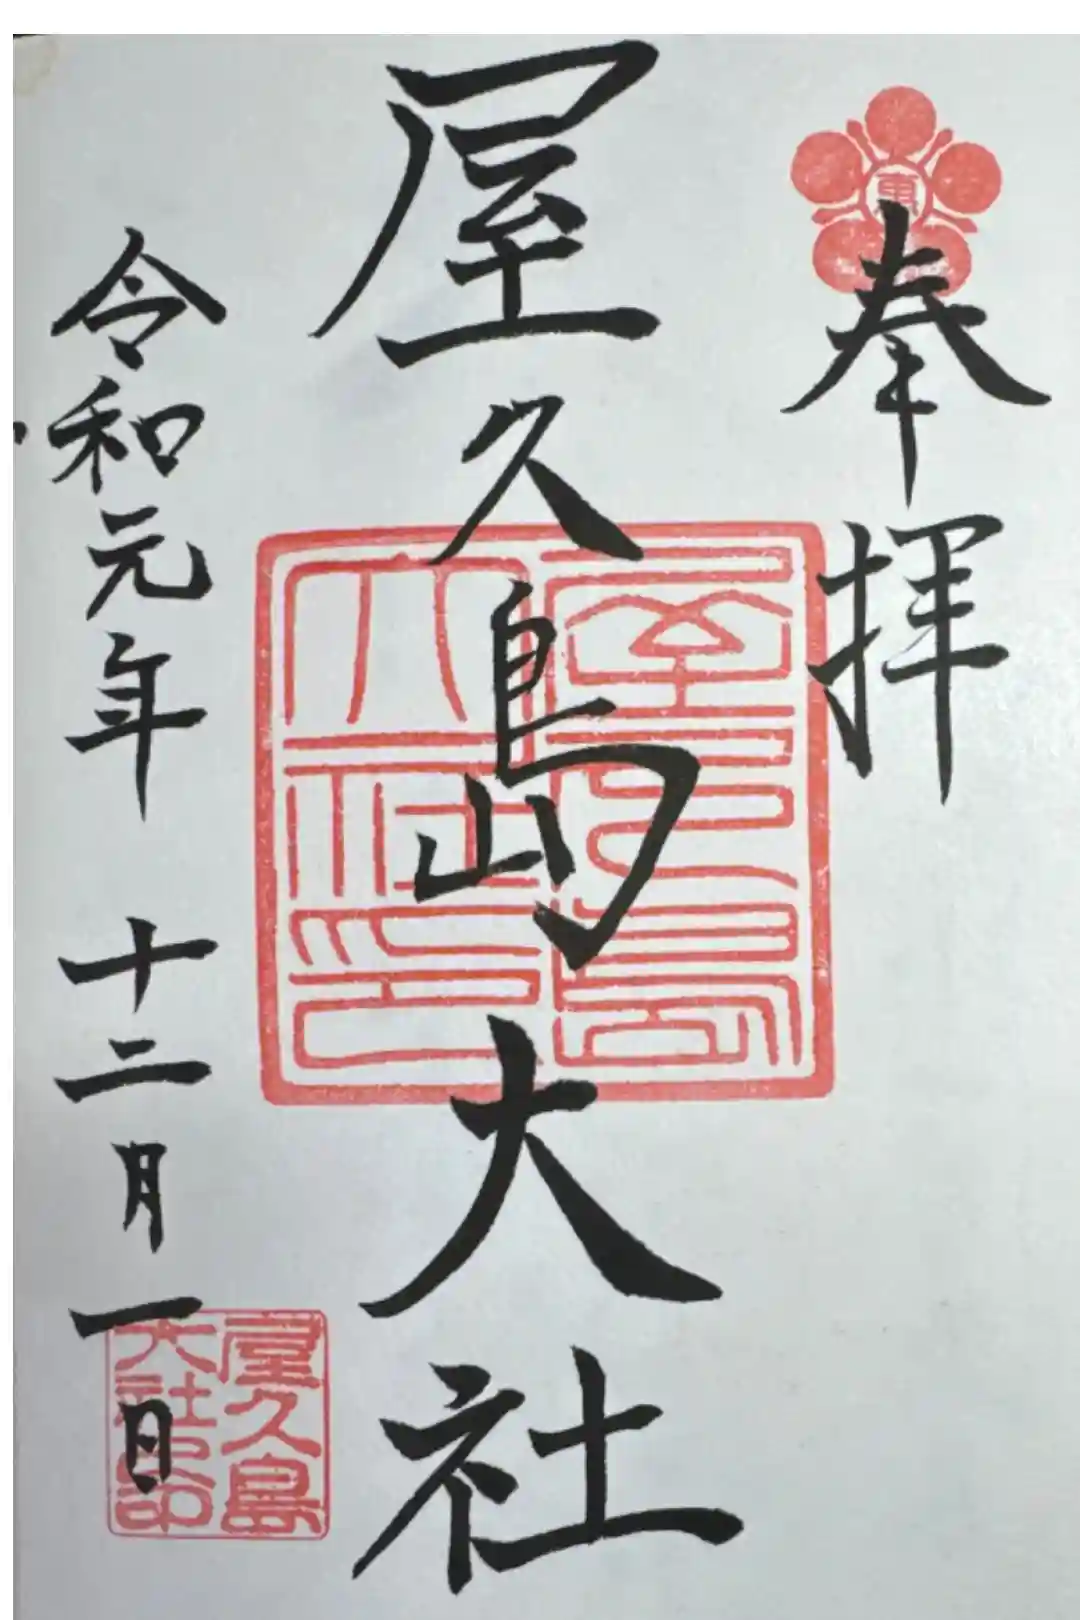 東
奉拝
屋久島大社
屋久島大社印
令和元年 十二月一日
屋久島
大社印